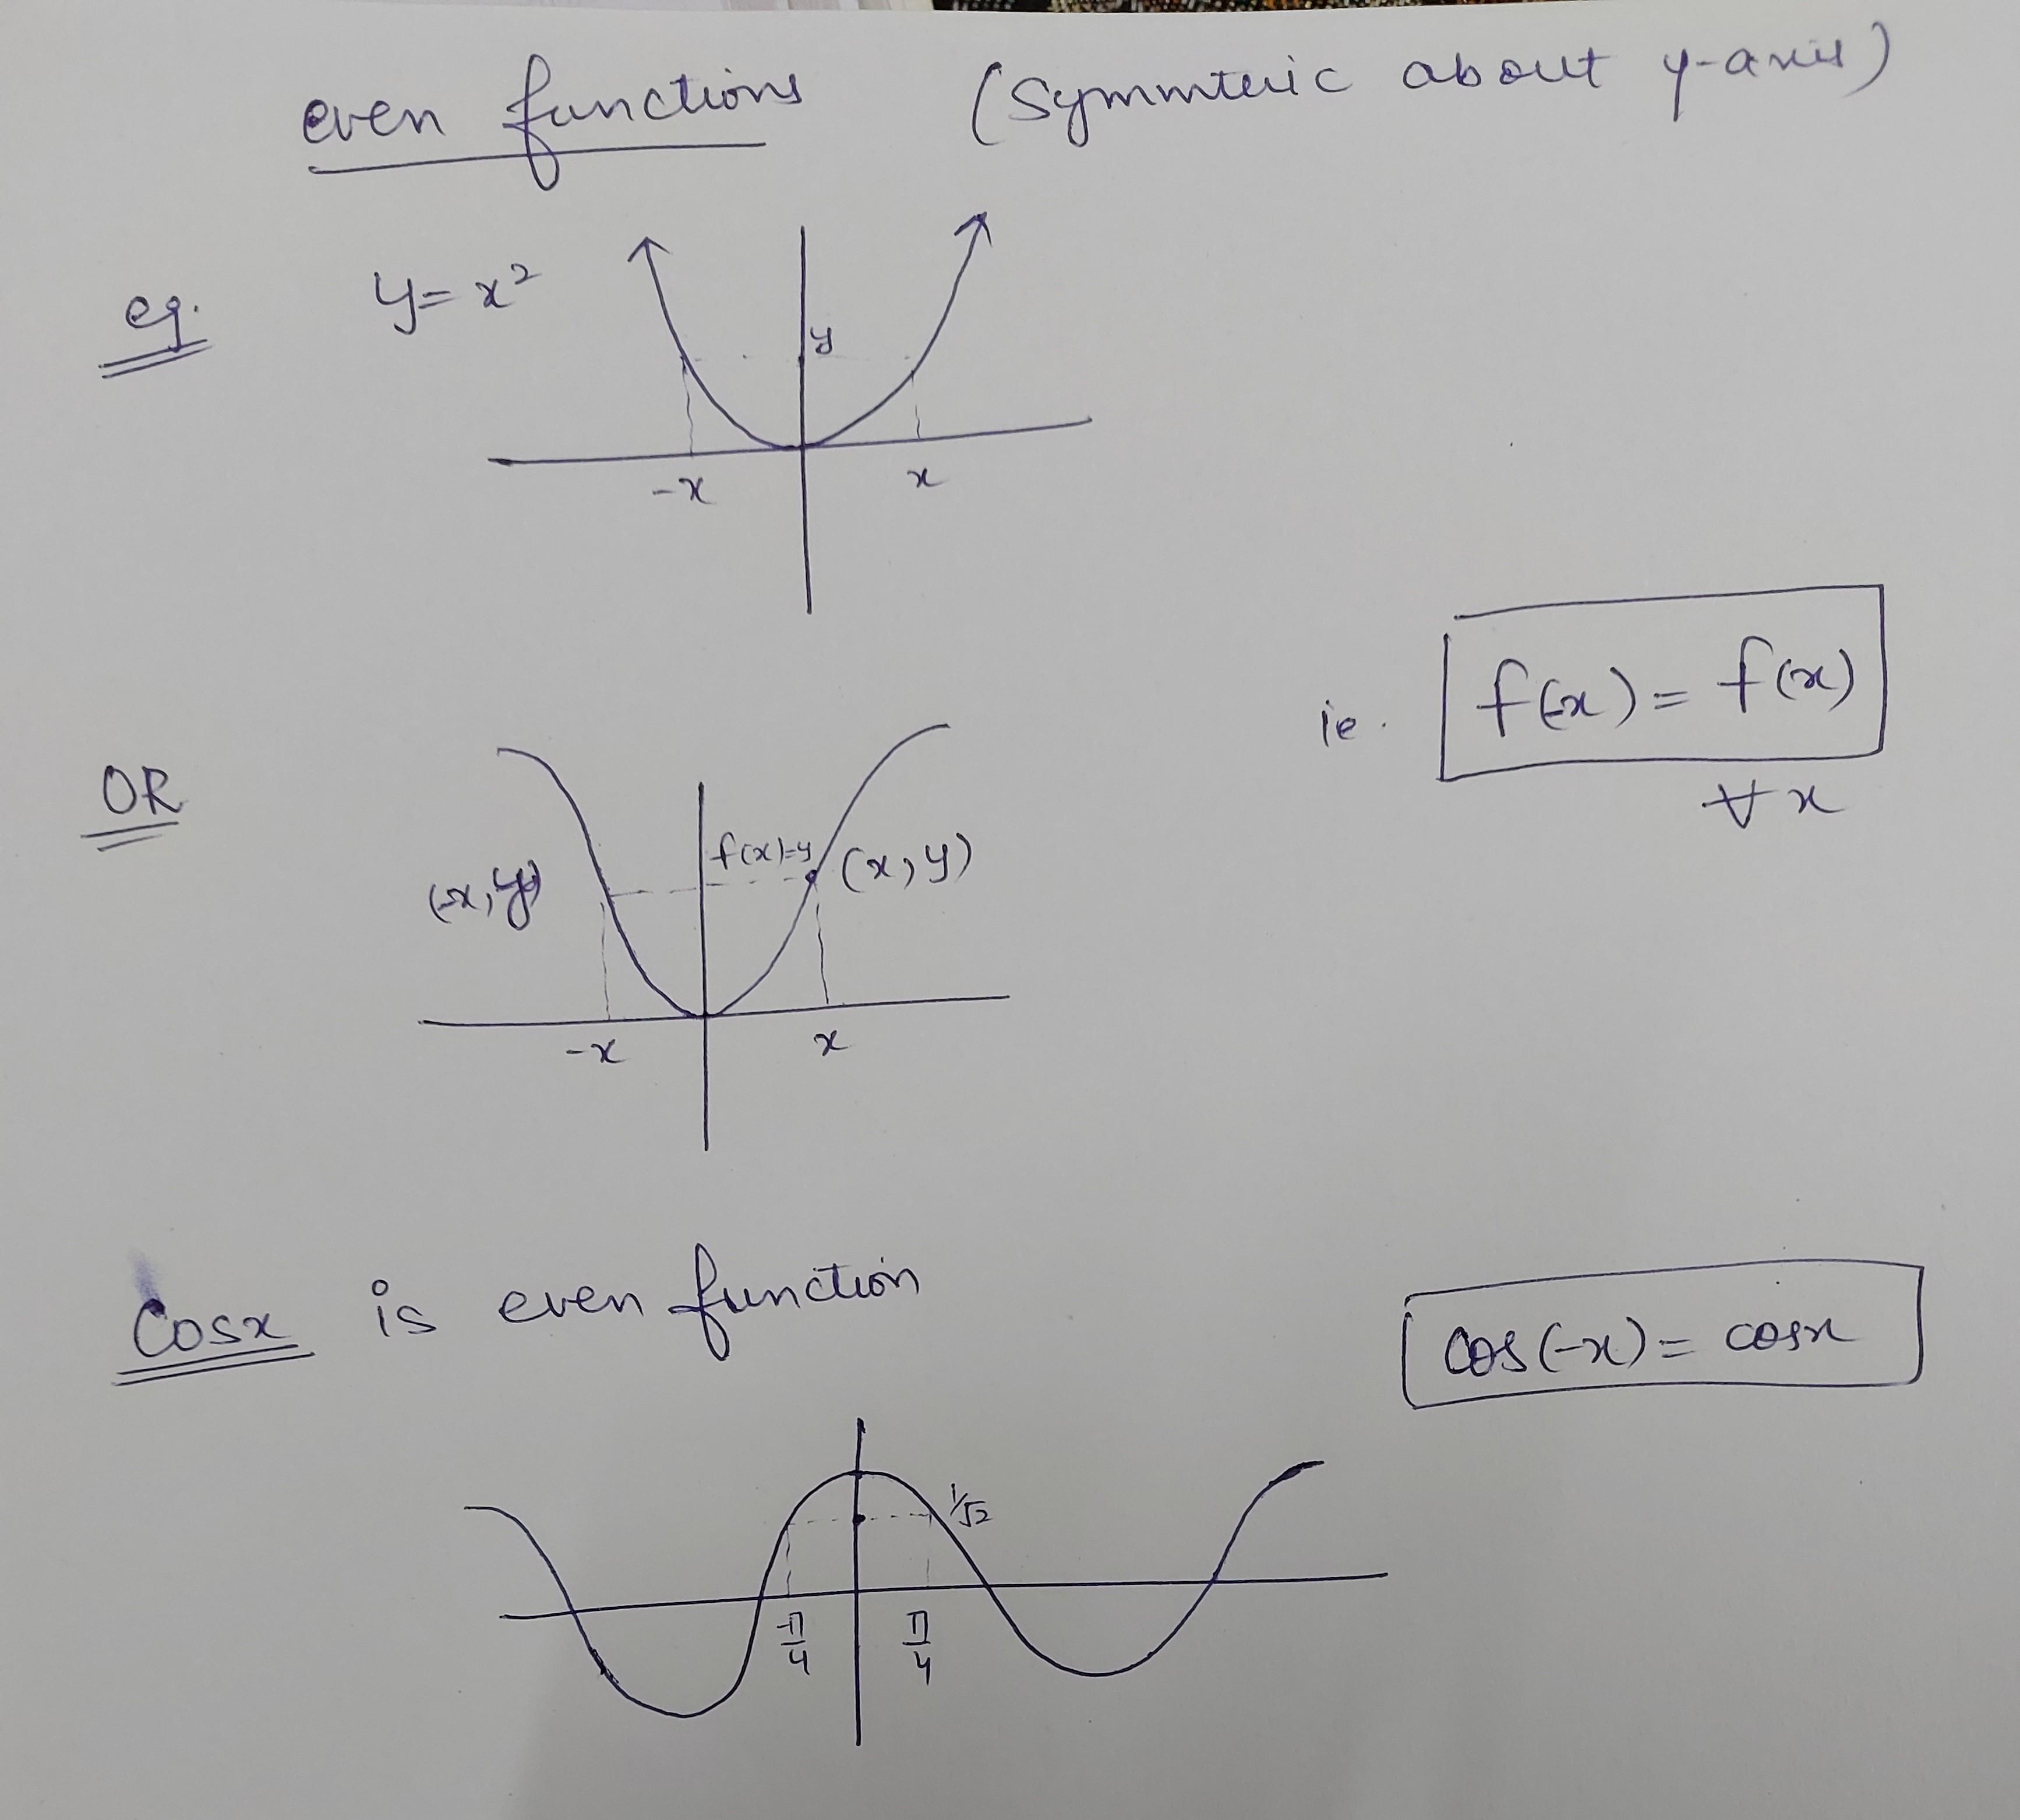 even functions (Symmteric about y-axis)
eg. y = x²
y
-x x
ie. f(-x) = f(x)
∀ x
OR
f(x)=y
(-x, y) (x, y)
-x x
Cosx is even function
cos(-x) = cosx
1/√2
-π/4 π/4